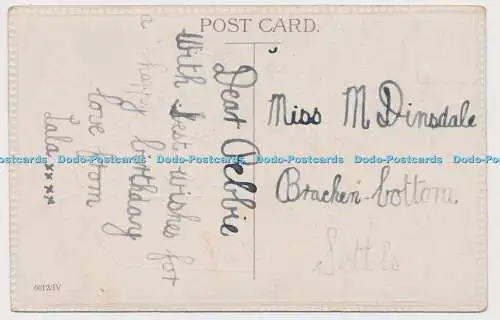 POST CARD.
Dear Debbie
With best wishes for
a happy birthday
love from
Lala xxxx
Miss M Dinsdale
Bracken-bottom.
Settle
Dodo-Postcards Dodo-Postcards Dodo-Postcards Dodo-Postcards Dodo-Postcards Dodo-Postcards
6612/IV